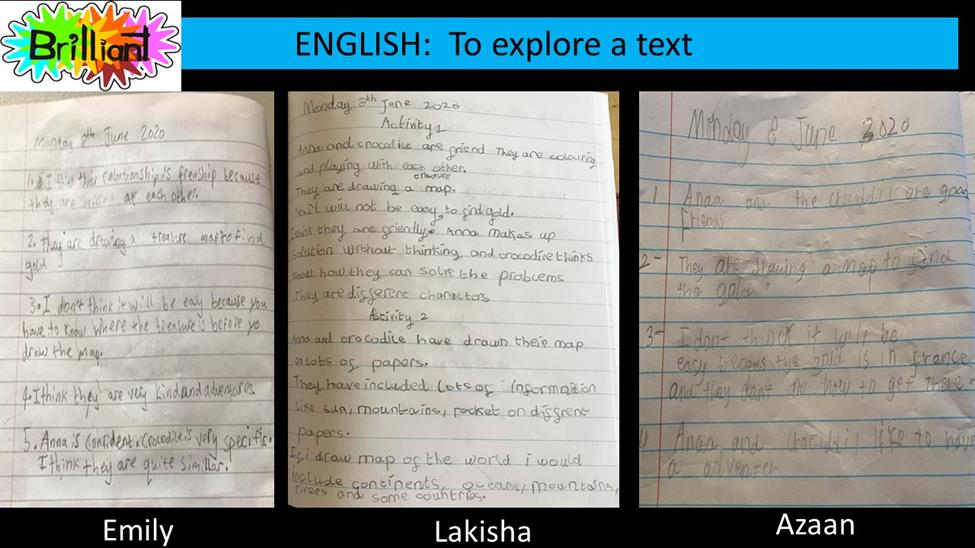 Brilliant
ENGLISH: To explore a text
Monday 8th June 2020
1. I think their relationship is freiship because
they are nice at each other.
2. They are drawing a treasure map to find
gold
3. I don't think it will be easy because you
have to know where the treasure is before yo
draw the map.
4. I think they are very kind and adventures
5. Anna is confident. Crocodile is very specific.
I think they are quite similar.
Emily
Monday 8th June 2020
Activity 1
Anna and crocodile are friend They are colouring
and playing with each other.
treasure
They are drawing a map.
No. It will not be easy to find gold.
I think they are friendly. Anna makes up
solution without thinking and crocodile thinks
about how they can solve the problems
They are different charactors
Activity 2
Anna and crocodile have drawn their map
on lots of papers.
They have included lots of information
like sun, mountains, rocket on diffrent
papers.
If i draw map of the world i would
include continents, oceans, mountains,
rivers and some countries.
Lakisha
Minday 8 June 2020
1 Anaa and the crociddil are good
Friends
2- They are drawing a map to find
the gold.
3- I dont thinck it will be
easy becous the gold is in france
and they dont no how to get there
4 Anaa and crociddil like to have
a adventer
Azaan